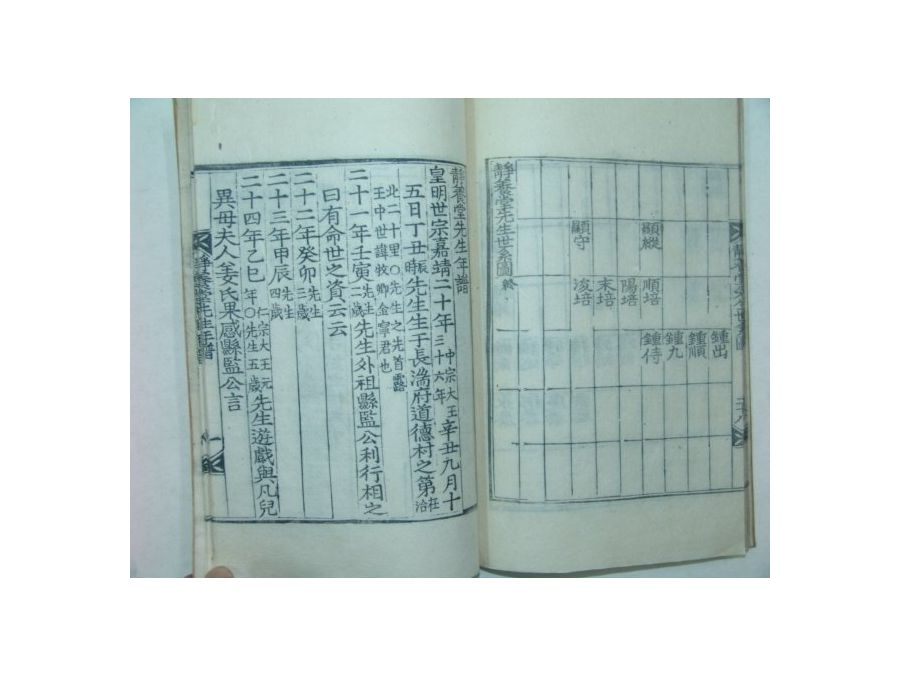 顯縱
顯守
順培
陽培
末培
浚培
鍾出
鍾順
鍾九
鍾侍
靜養堂先生世系圖 終
靜養堂先生年譜
皇明世宗嘉靖二十年 中宗大王三十六年 辛丑九月十
五日丁丑 辰時 先生生于長湍府道德村之第 在治
北二十里○先生之先首露
王中世諱牧卿金寧君也
二十一年壬寅 先生二歲 先生外祖縣監公利行相之
曰有命世之資云云
二十二年癸卯 先生三歲
二十三年甲辰 先生四歲
二十四年乙巳 仁宗大王元年○先生五歲 先生遊戱與凡兒
異母夫人姜氏果感縣監公言
靜養堂先生年譜
一